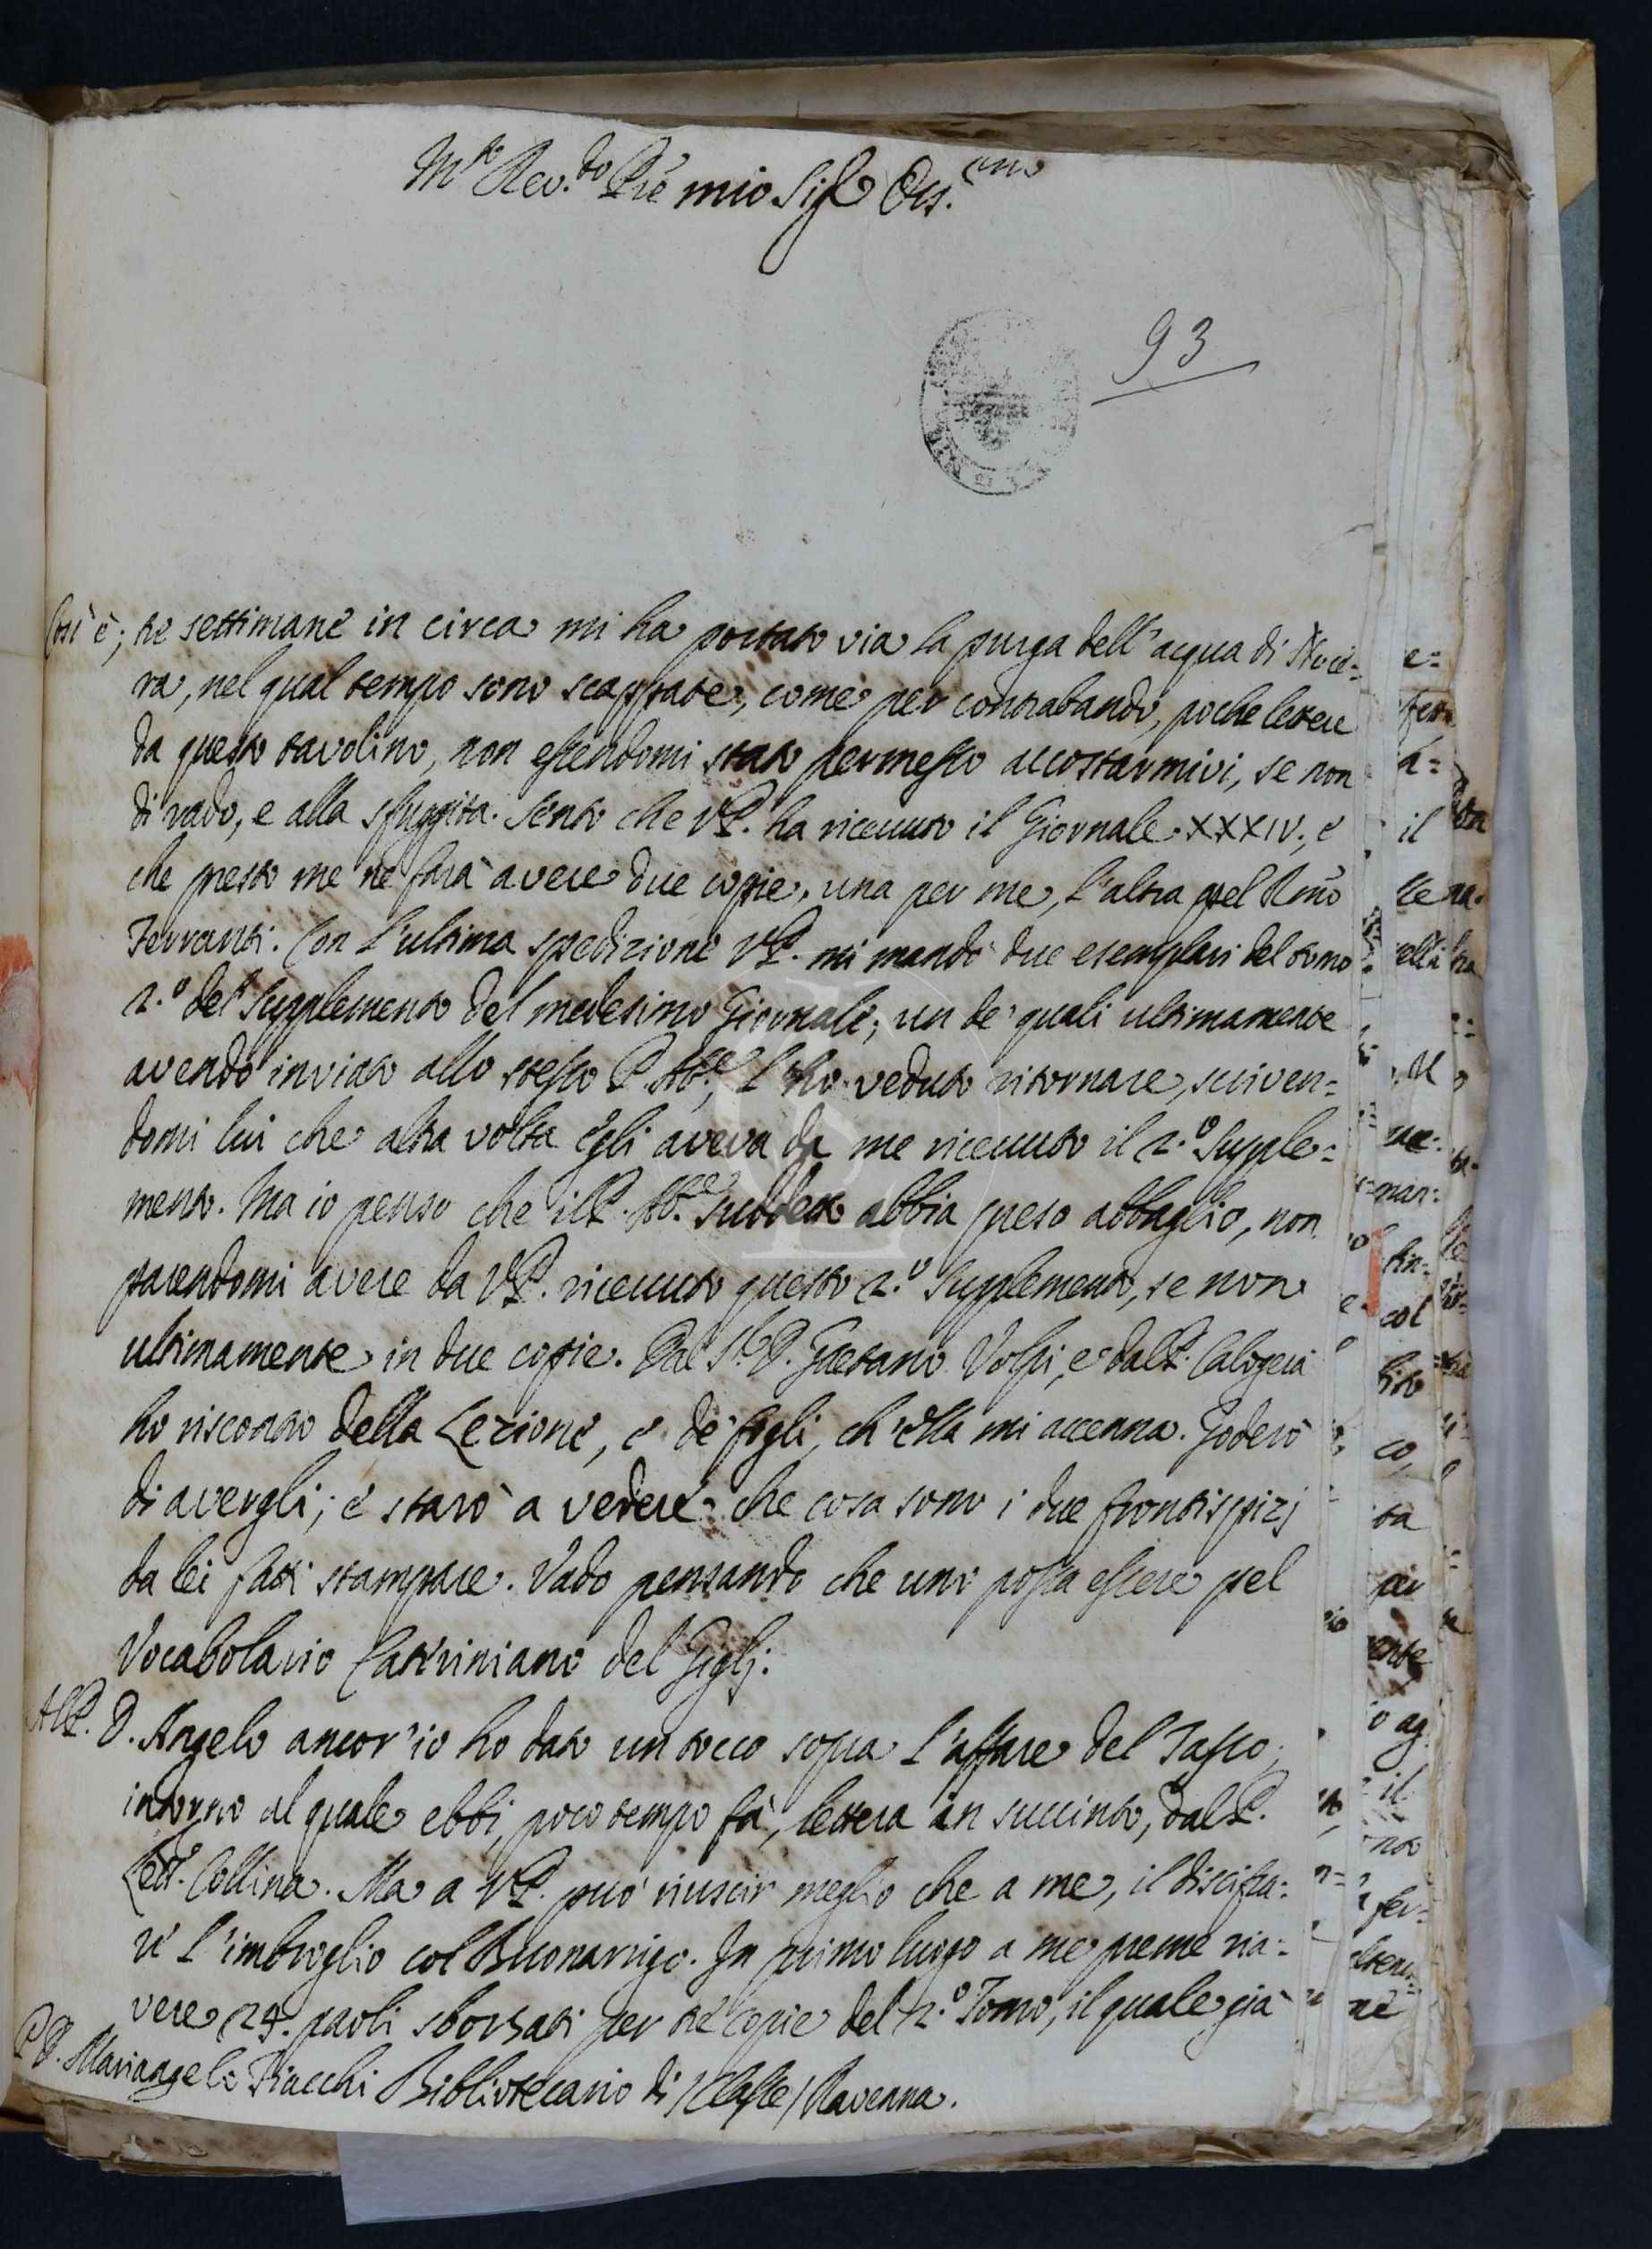 M.to Rev.do Pre mio Sig.e Oss.emo
93
Così è; tre settimane in circa mi ha portato via la purga dell'acqua di Noce=
ra, nel qual tempo sono scappate, come per contrabando, poche lettere
da questo tavolino, non essendomi stato permesso accostarmivi, se non
di rado, e alla sfuggita. Sento che V.P. ha ricevuto il Giornale XXXIV., e
che presto me ne farà avere due copie, una per me, l'altra pel Rmo
Ferranti. Con l'ultima spedizione V.P. mi mandò due esemplari del tomo
2.º del supplemento del medesimo Giornale; un de' quali ultimamente
avendo inviato allo stesso P. Ab.e, l'ho veduto ritornare, scriven=
domi lui che altra volta egli aveva da me ricevuto il 2.º Supple=
mento. Ma io penso che il P. Ab.e suddetto abbia preso abbaglio, non
parendomi avere da V.P. ricevuto questo 2.º Supplemento, se non
ultimamente in due copie. Dal S.r D. Gaetano Volpi, e dal P. Calogerà
ho riscontro della Lezione, e de' fogli, ch'ella mi accenna. Goderò
di avergli; e starò a vedere che cosa sono i due frontispizj
da lei fatti stampare. Vado pensando che uno possa essere pel
Vocabolario Cateriniano del Giglj.
Al P. D. Angelo ancor'io ho dato un tocco sopra l'affare del Tasso;
intorno al quale ebbi, poco tempo fà, lettera in succinto, dal P.
Lett.e Collina. Ma a V.P. può riuscir meglio che a me, il discifra=
re l'imbroglio col Buonarrigo. In primo luogo a me preme ria=
vere 24. paoli sborsati per tre copie del 2.º Tomo, il quale già
P. D. Mariangelo Fiacchi Bibliotecario di /Classe/ Ravenna.